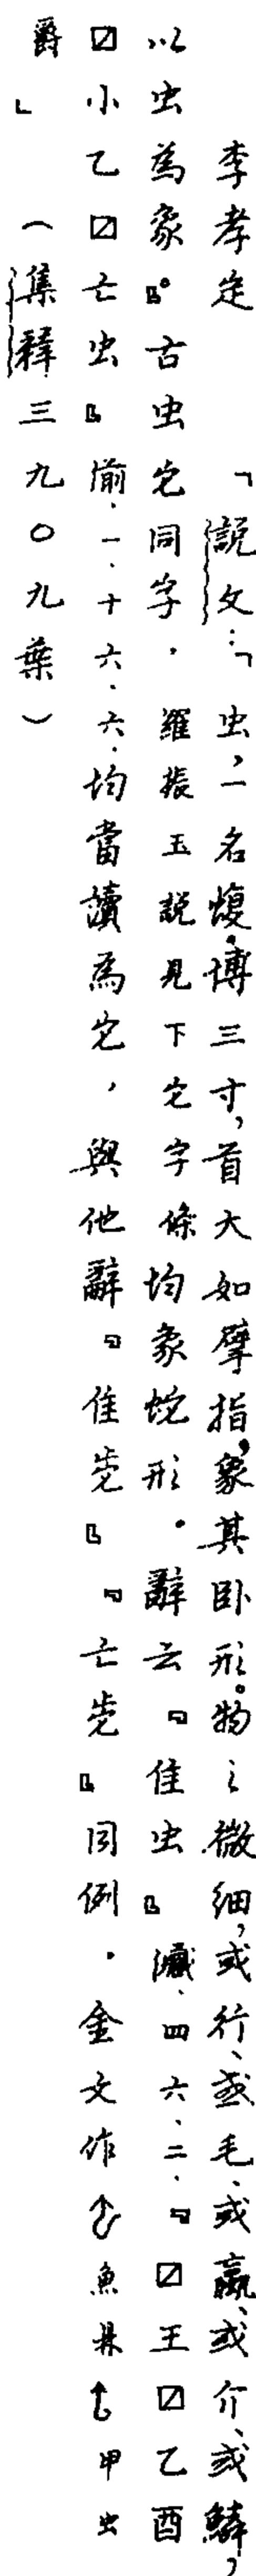 李孝定　「說文：「虫，一名蝮。博三寸，首大如擘指，象其臥形。物之微細，或行、或毛、或蠃、或介、或鱗，
以虫為象。』古虫它同字，羅振玉說見下它字條均象蛇形．辭云『隹虫』藏．四六．二．『〼王〼乙酉
〼小乙〼亡虫』前．一．十六．六．均當讀為它，與他辭『隹𡆥』『亡𡆥』同例．金文作魚匕甲虫
爵」（集釋三九〇九葉）